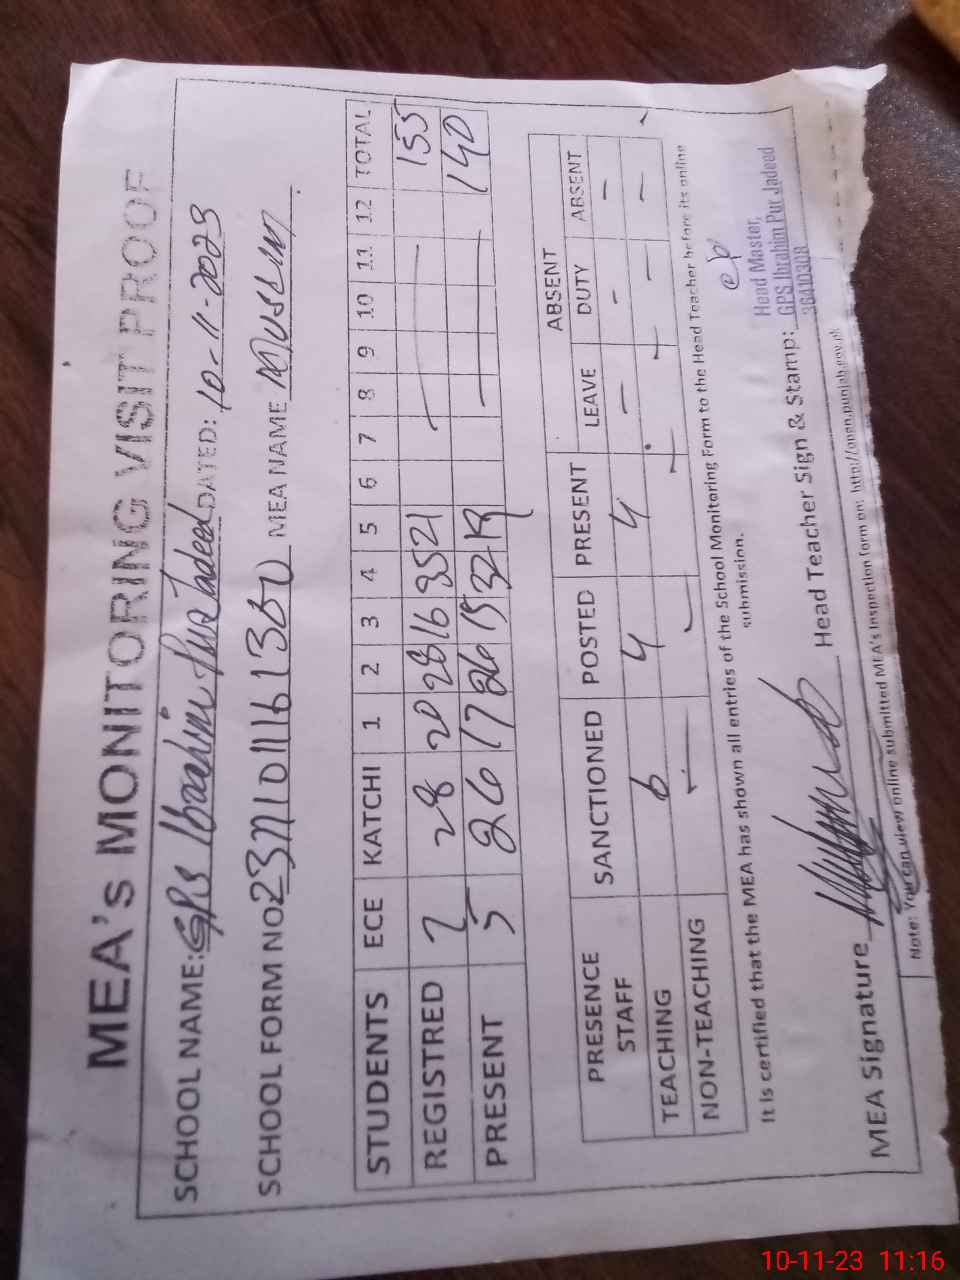 MEA's MONITORING VISIT PROOF
SCHOOL NAME: GPS Ibrahim Pur Jadeed DATED: 10-11-2023
SCHOOL FORM NO MEA NAME
STUDENTS ECE KATCHI 1 2 3 4 5 6 7 8 9 10 11 12 TOTAL
REGISTRED 7 28 20 28 16 35 21 155
PRESENT 5 26 17 26 15 32 19 140
PRESENCE STAFF SANCTIONED POSTED PRESENT ABSENT
LEAVE DUTY ABSENT
TEACHING 6 4 4 - - -
NON-TEACHING - - - - - -
It is certified that the MEA has shown all entries of the School Monitoring Form to the Head Teacher before its online
submission.
Head Master,
GPS Ibrahim Pur Jadeed
36410308
MEA Signature Head Teacher Sign & Stamp:
Note: You can view online submitted MEA's Inspection form on: http://open.punjab.gov.pk
10-11-23 11:16